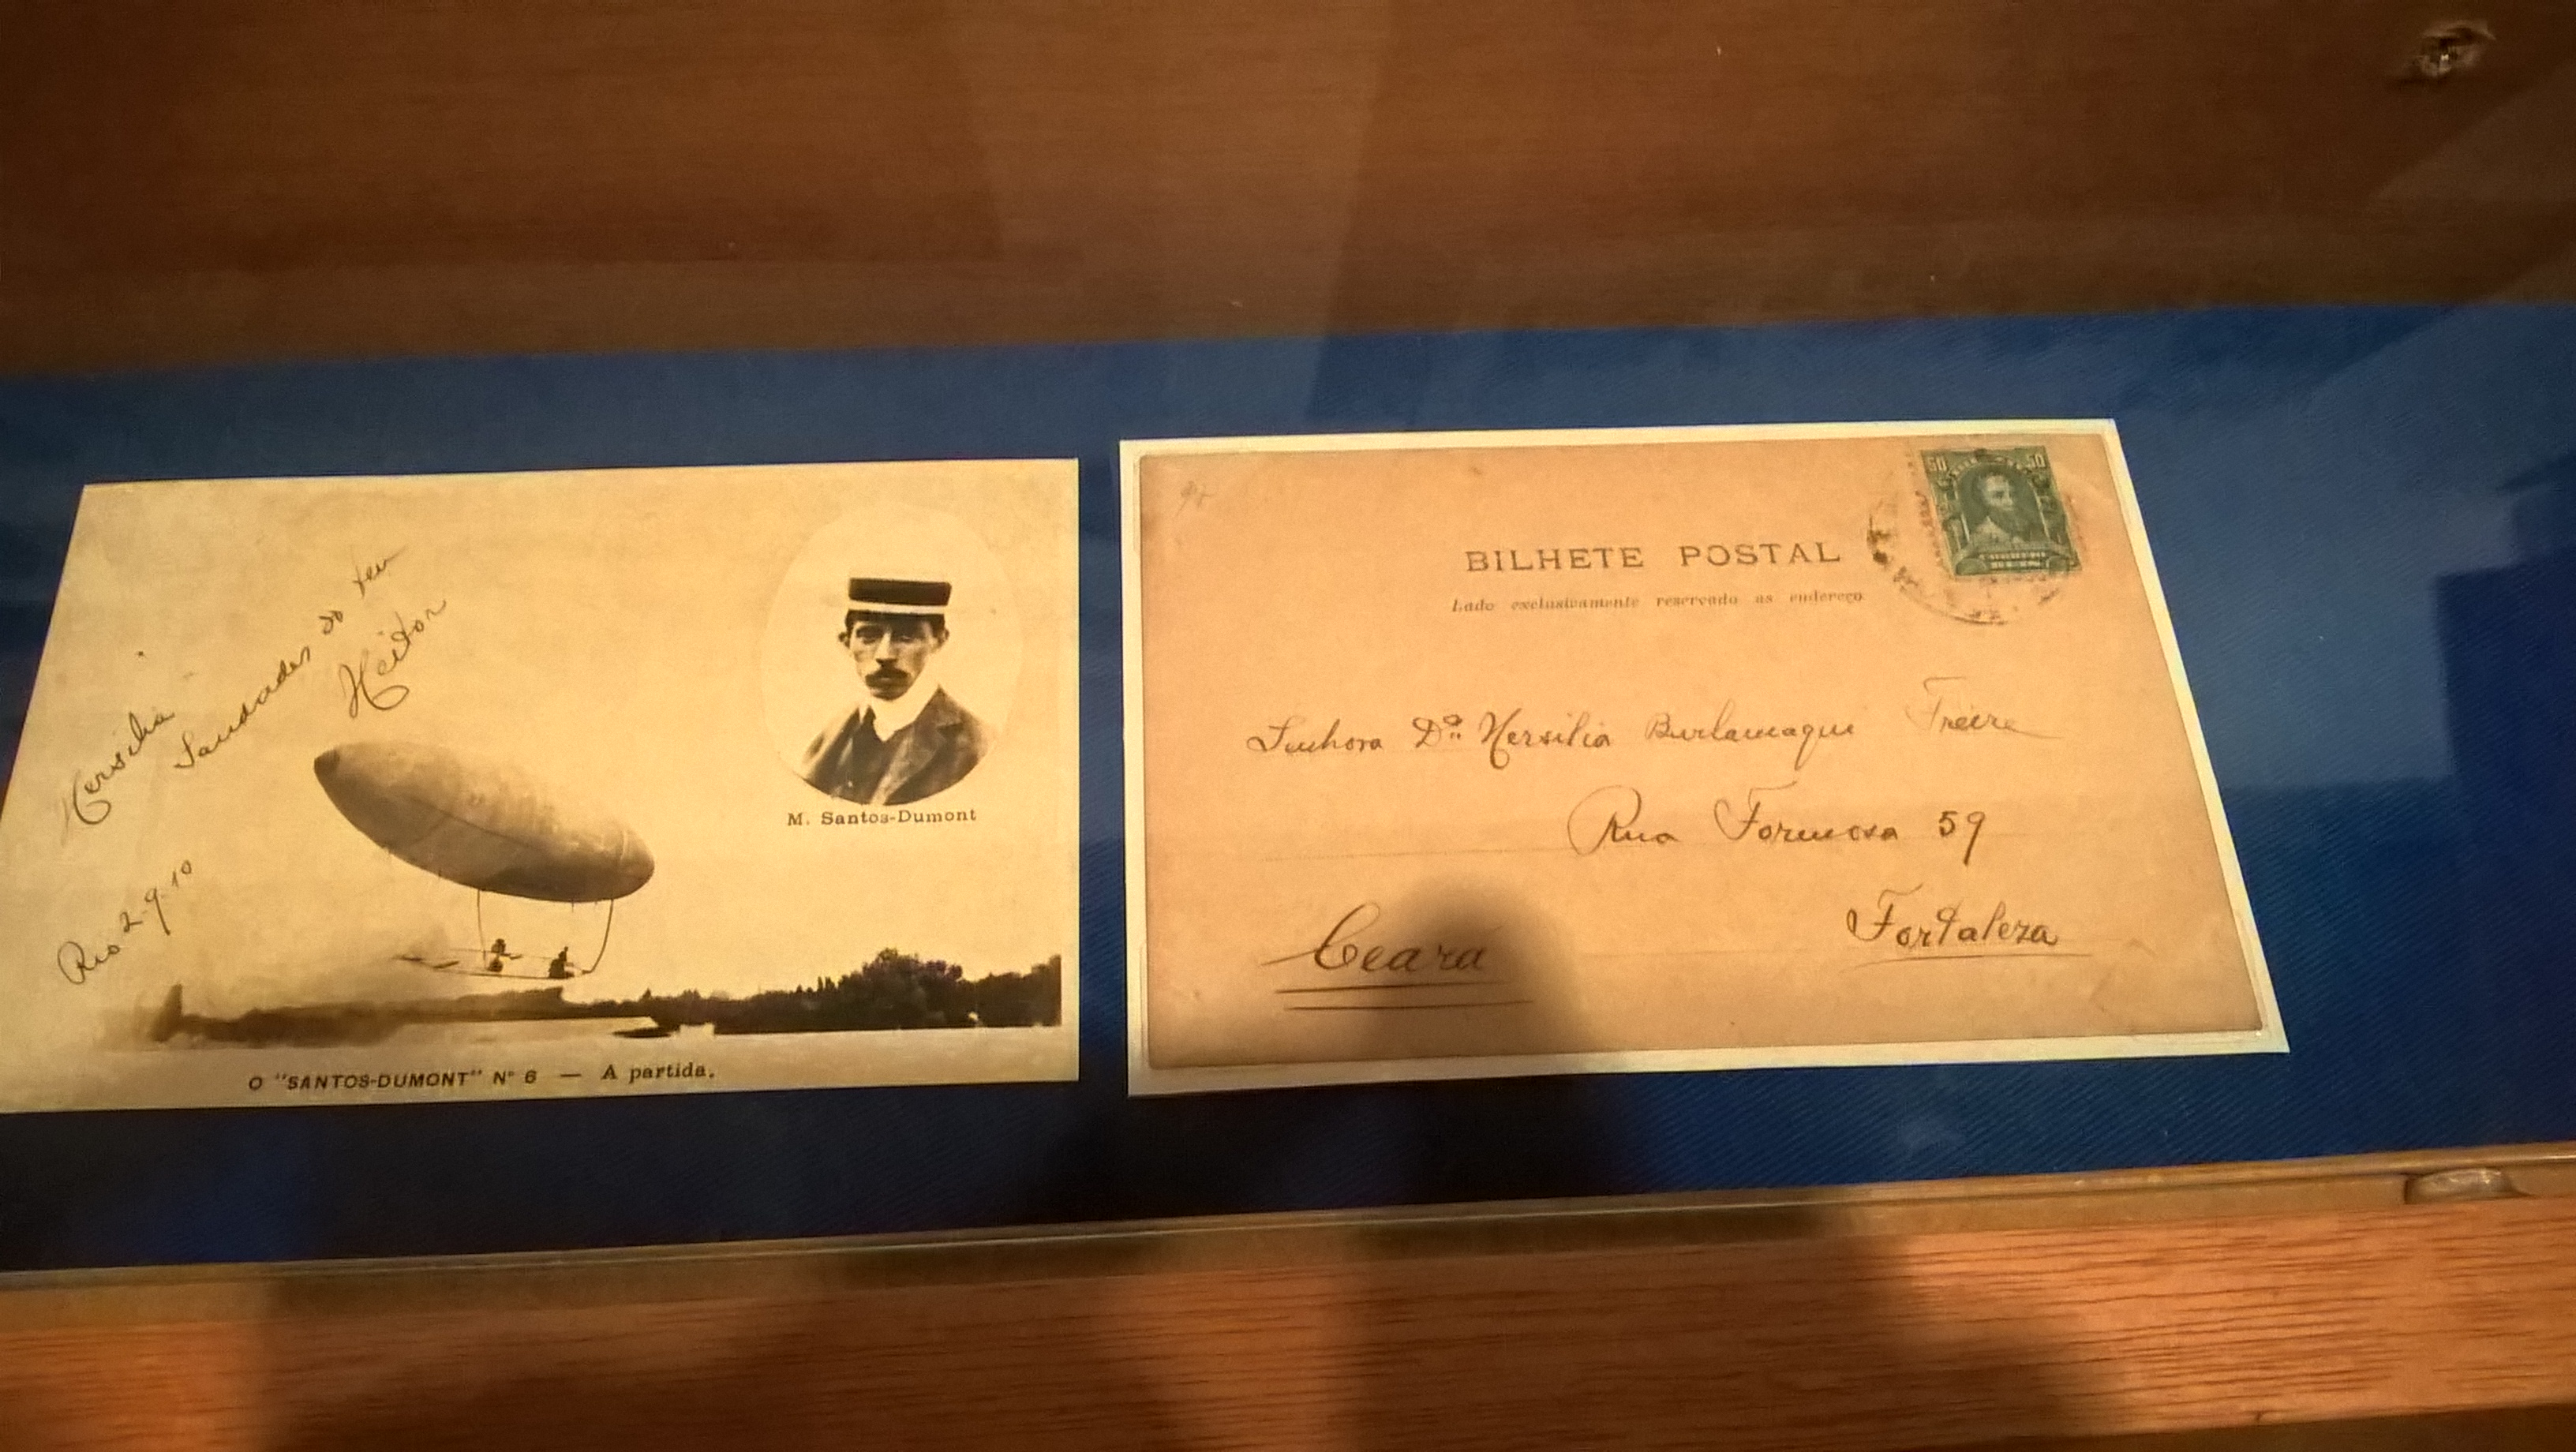 Hersilia
Saudades do teu
Heitor
Rio 2-9-10
M. Santos-Dumont
O "SANTOS-DUMONT" Nº 6 — A partida.
BILHETE POSTAL
Lado exclusivamente reservado ao endereço
50 50
Senhora Dª Hersilia Burlamaqui Freire
Rua Formosa 59
Fortaleza
Ceará